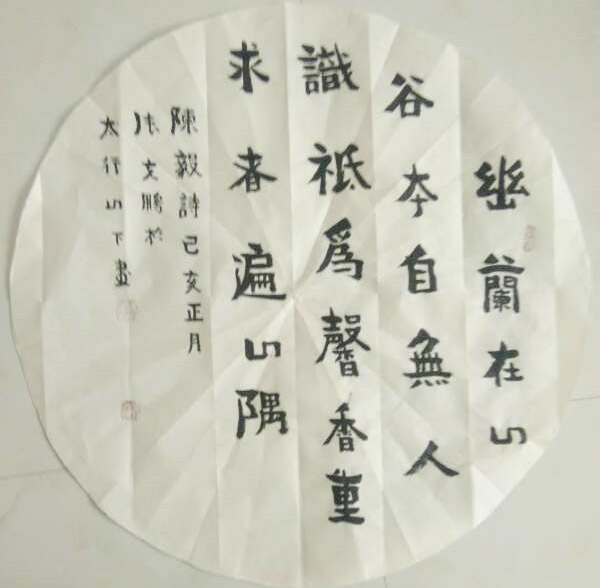 幽蘭在山
谷本自無人
識祗爲馨香重
求者遍山隅
陳毅詩己亥正月
文鵬於
太行山下